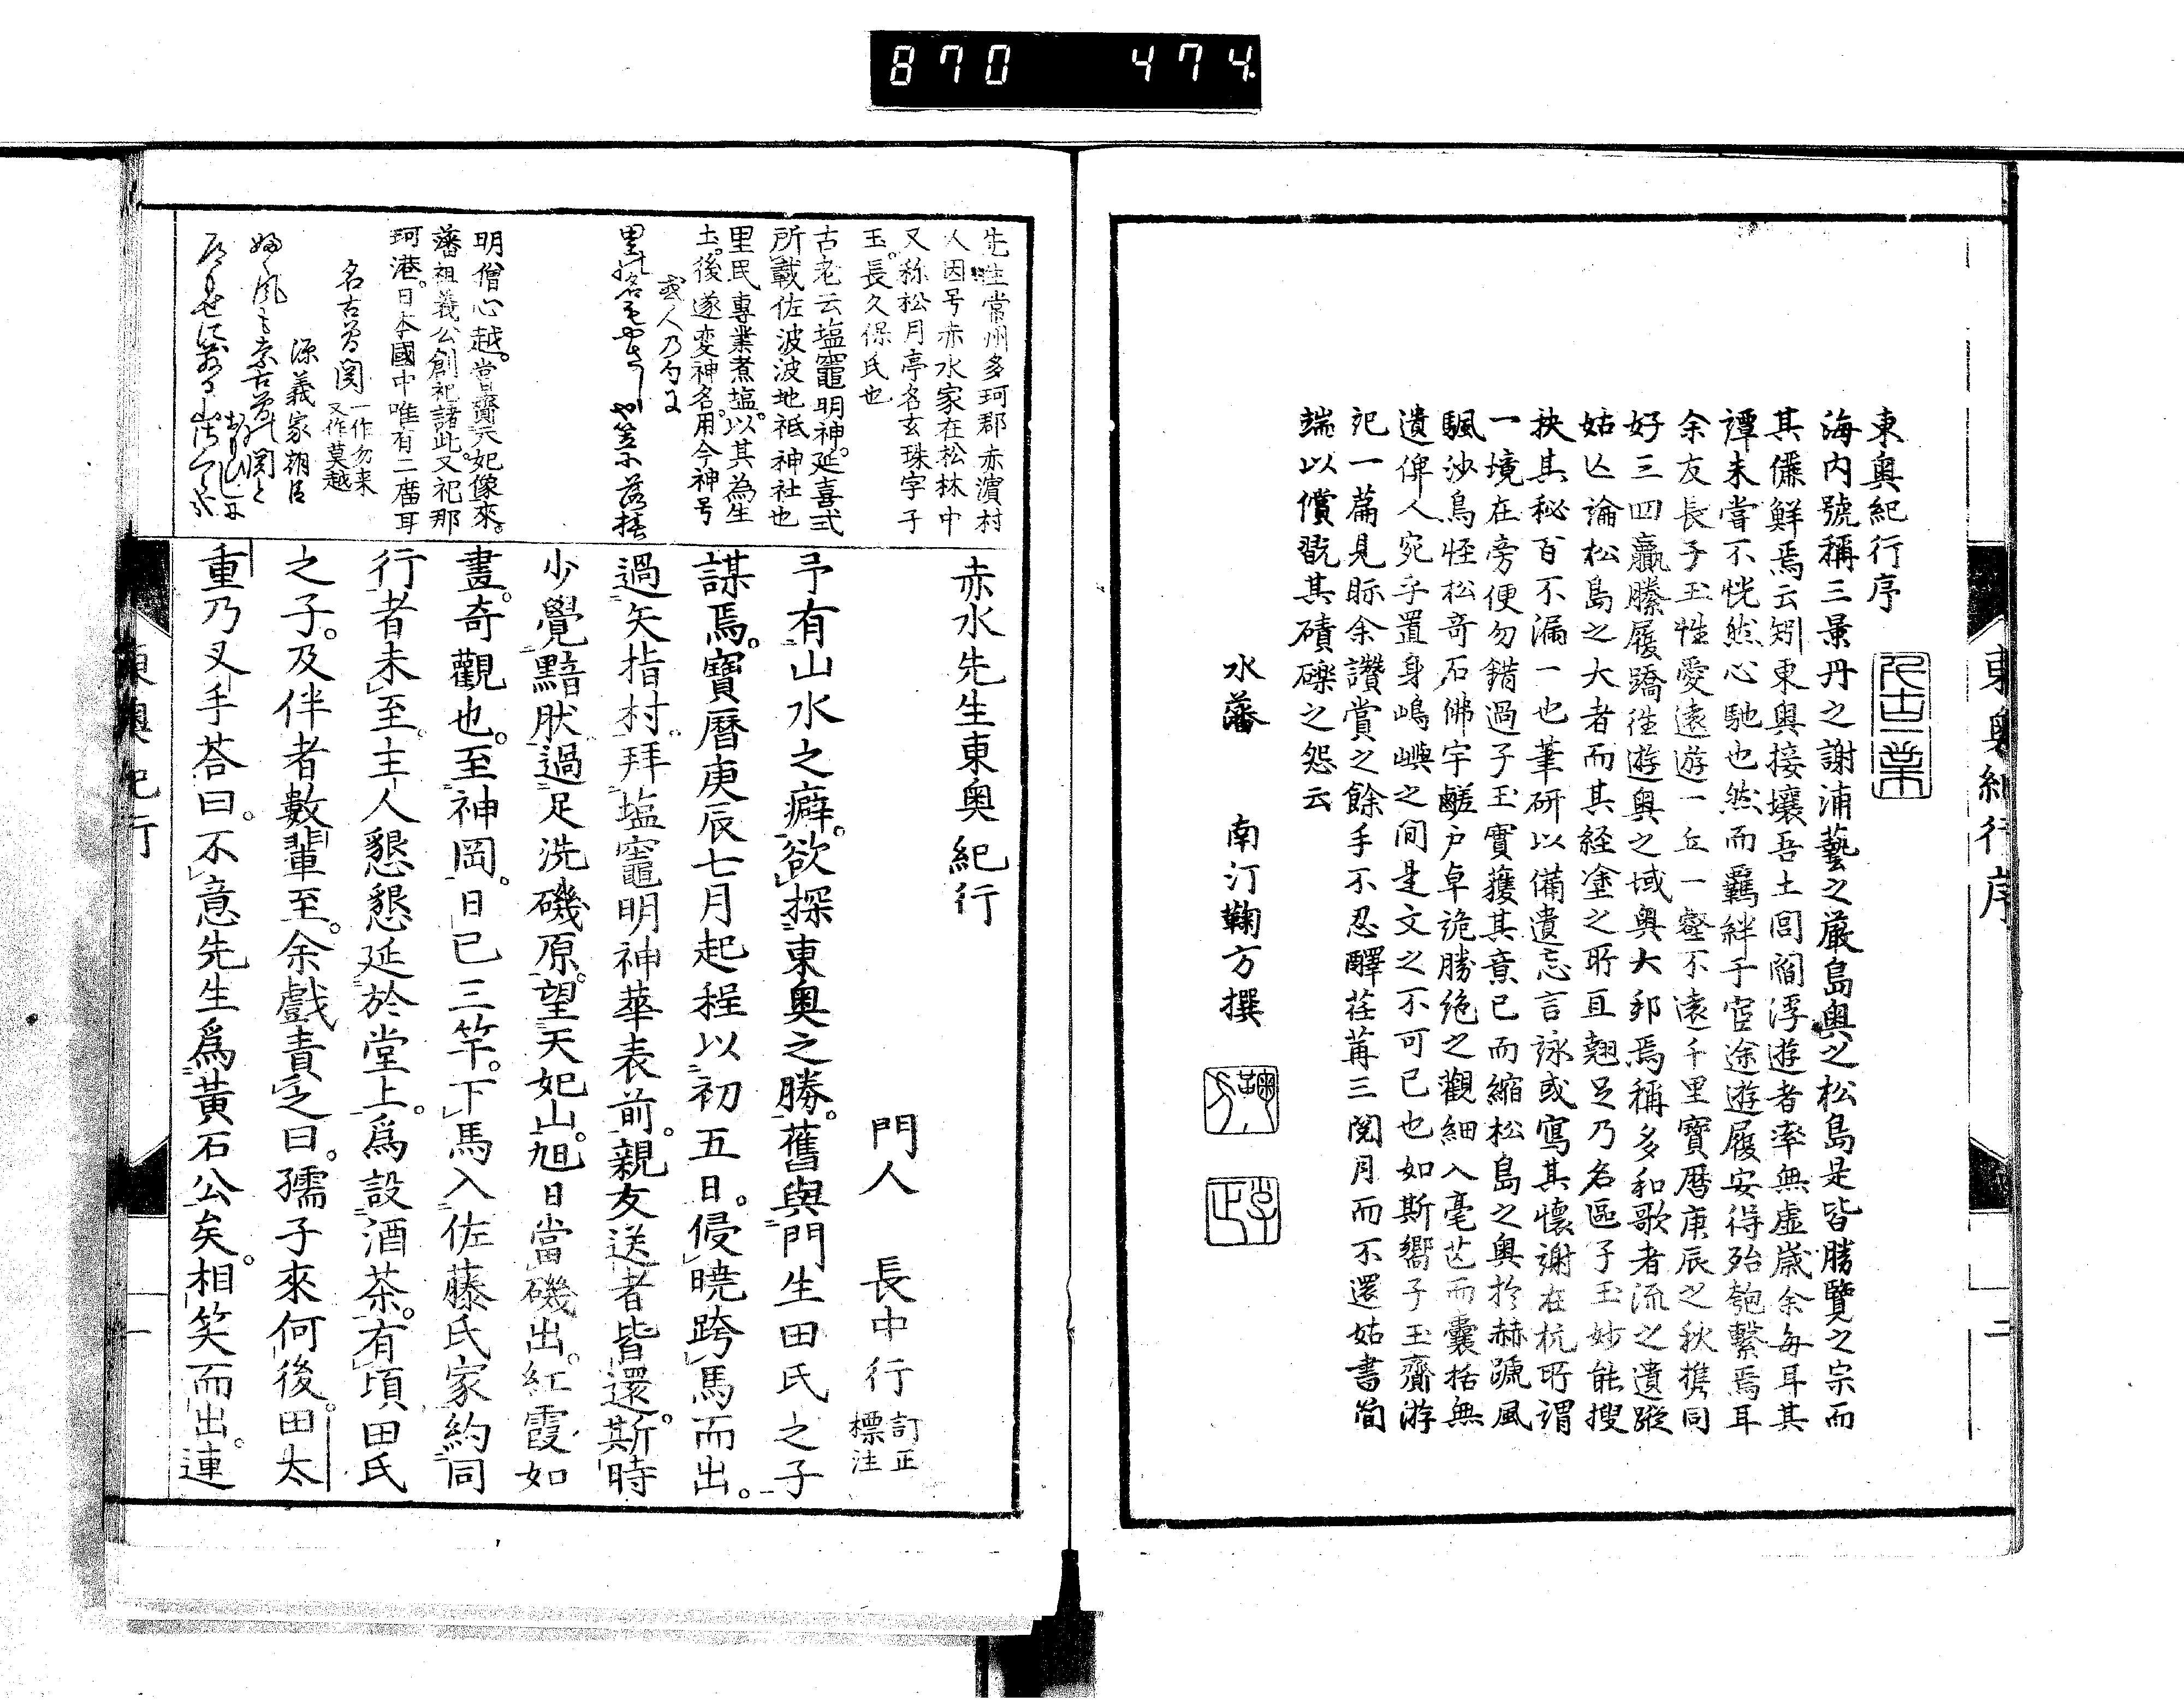 870 474
東奧紀行序
東奧紀行序
海內號稱三景丹之謝浦藝之嚴島奧之松島是皆勝覽之宗而
其儷鮮焉云矧東奧接壤吾土閭閻浮遊者率無虛歲余每耳其
譚未嘗不恍然心馳也然而羈絆于官途遊履安得殆匏繫焉耳
余友長子玉性愛遠游一丘一壑不遠千里寶曆庚辰之秋携同
好三四贏縢履蹻往游奧之域奧大邦焉稱多和歌者流之遺蹤
姑亾論松島之大者而其経塗之所亘翹足乃名區子玉妙能搜
抉其秘百不漏一也筆研以備遺忘言詠或寫其懷謝在杭所謂
一境在旁便勿錯過子玉實獲其意已而縮松島之奧於赫蹏風
颿沙鳥恠松竒石佛宇鹺戶卓詭勝絶之觀細入毫芒而囊括無
遺俾人宛乎置身嶋嶼之間是文之不可已也如斯嚮子玉齎游
紀一篇見眎余讚賞之餘手不忍釋荏苒三閱月而不還姑書簡
端以償翫其磧礫之怨云
水藩 南汀鞠方撰
二
先生常州多珂郡赤濱村
人因号赤水家在松林中
又称松月亭名玄珠字子
玉長久保氏也
古老云塩竈明神延喜式
所載佐波波地祇神社也
里民專業煮塩以其為生
土後遂変神名用今神号
或人乃句に
明僧心越嘗齎天妃像來
藩祖義公創祀諸此又祀那
珂港日本國中唯有二廟耳
名古曽関 一作勿来
又作莫越
源義家朝臣
赤水先生東奧紀行
門人 長中行 訂正
標注
予有山水之癖欲探東奧之勝舊與門生田氏之子
謀焉寶曆庚辰七月起程以初五日侵曉跨馬而出
過矢指村拜塩竈明神華表前親友送者皆還斯時
少覺黯肰過足洗磯原望天妃山旭日當磯出紅霞如
畫奇觀也至神岡日已三竿下馬入佐藤氏家約同
行者未至主人懇懇延於堂上爲設酒茶有頃田氏
之子及伴者數輩至余戲責之曰孺子來何後田太
重乃叉手荅曰不意先生爲黃石公矣相笑而出連
東奧紀行
一